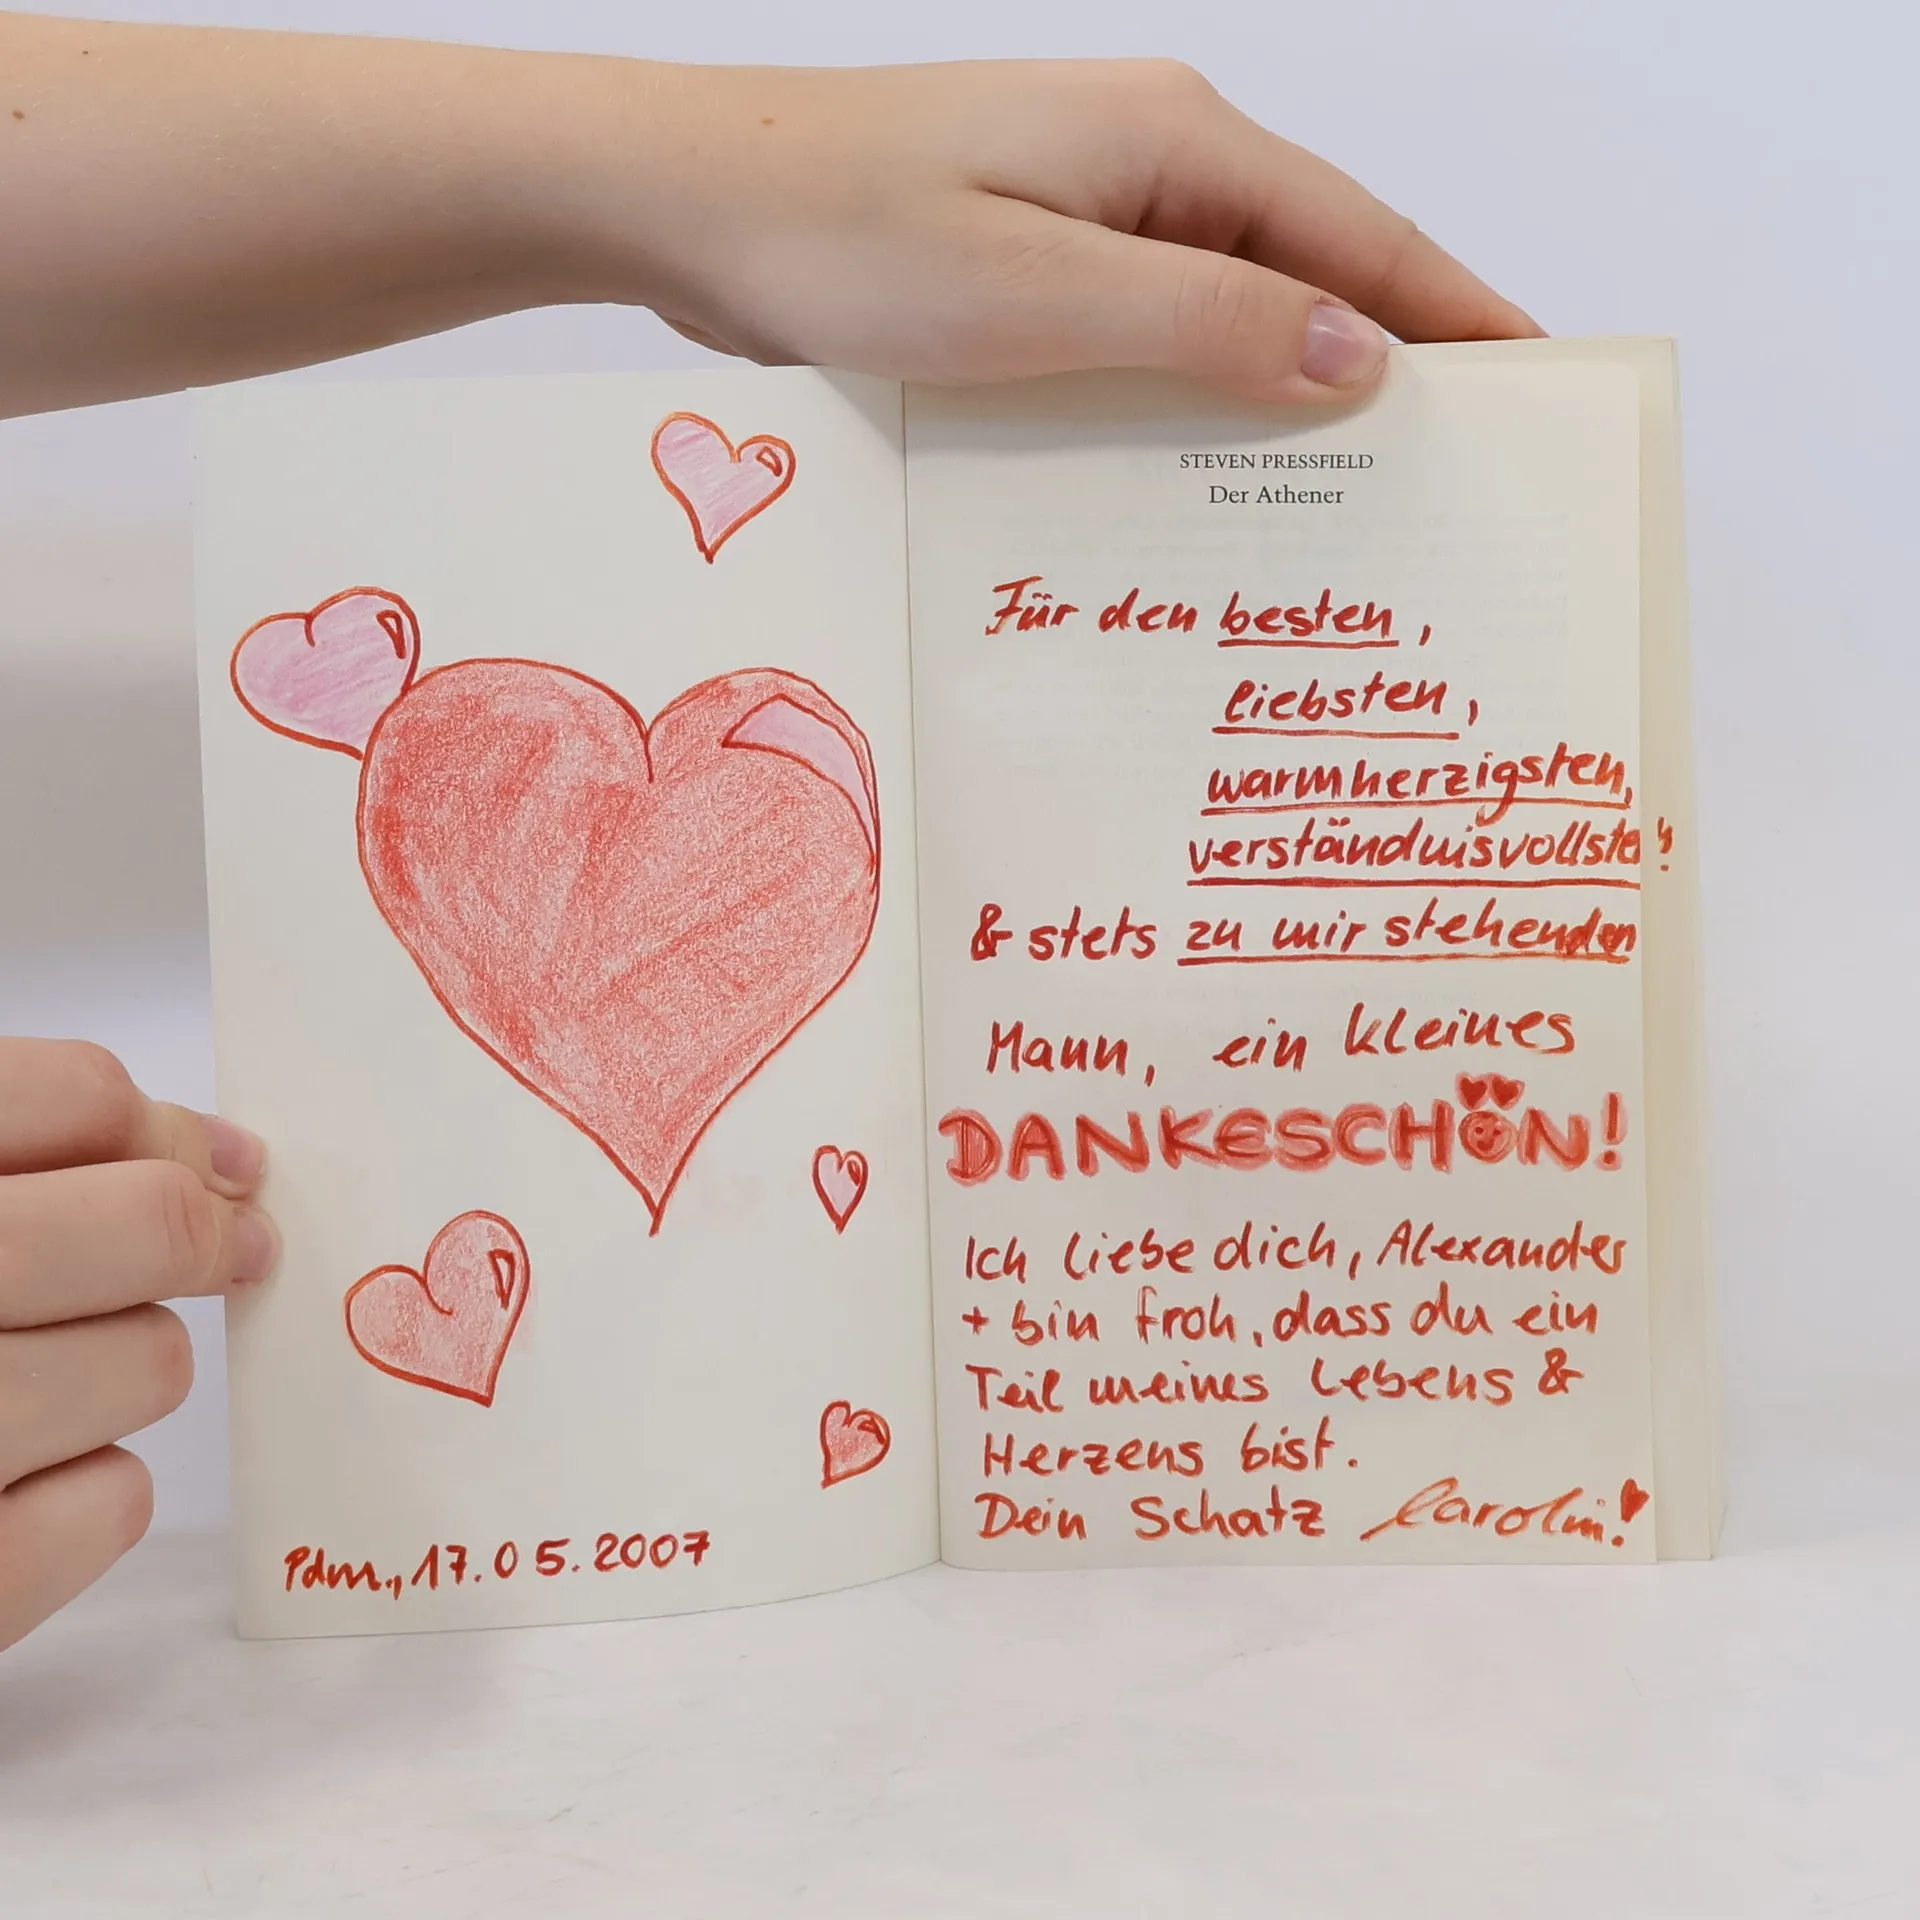 Pdm., 17.05.2007
STEVEN PRESSFIELD
Der Athener
Für den besten,
liebsten,
warmherzigsten,
verständnisvollsten!
& stets zu mir stehenden
Mann, ein kleines
DANKESCHÖN!
Ich liebe dich, Alexander
+ bin froh, dass du ein
Teil meines Lebens &
Herzens bist.
Dein Schatz Carolin!